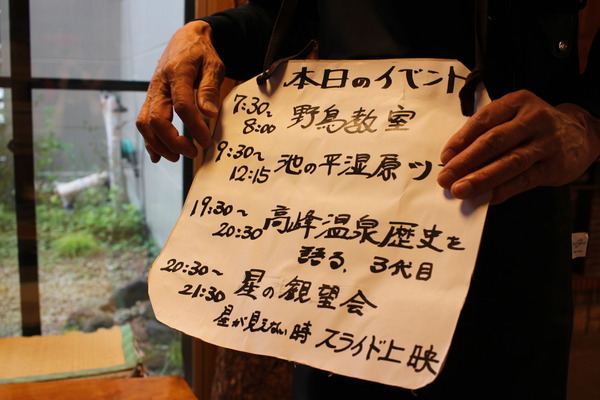 本日のイベント
7:30~
8:00 野鳥教室
9:30~
12:15 池の平湿原ツ
19:30~
20:30 高峰温泉歴史を
語る、3代目
20:30~
21:30 星の観望会
星が見えない時 スライド上映